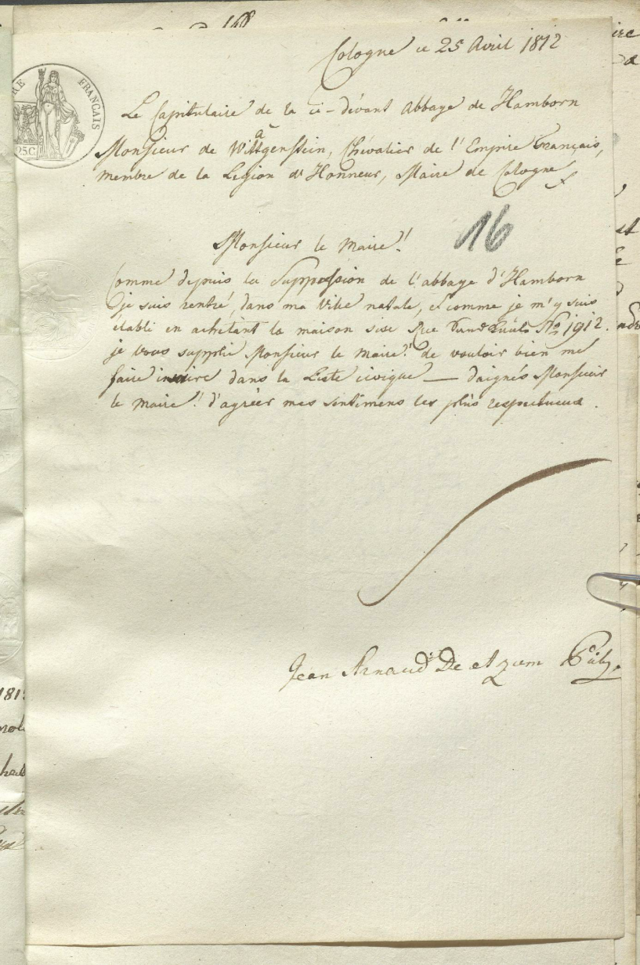 168
Cologne ce 25 Avril 1812
FRANÇAIS
25C
Le Capitulaire de la ci-dévant Abbaÿe de Hamborn
à
Monsieur de Wittgenstein, Chévalier de l'Empire Français,
membre de la Legion d'Honneur, Maire de Cologne
16
Monsieur le Maire!
Comme depuis la Suppression de l'abbaÿe d'Hamborn
je suis rentré, dans ma Ville natale, et comme je m'y suis
établi en achétant la maison sise Rue No 1912.
je vous supplie Monsieur le maire! de vouloir bien me
faire inscrire dans la Liste civique — daignés Monsieur
le Maire! d'agréer mes sentimens les plus respectueux.
Jean Arnaud De et zum Pütz.